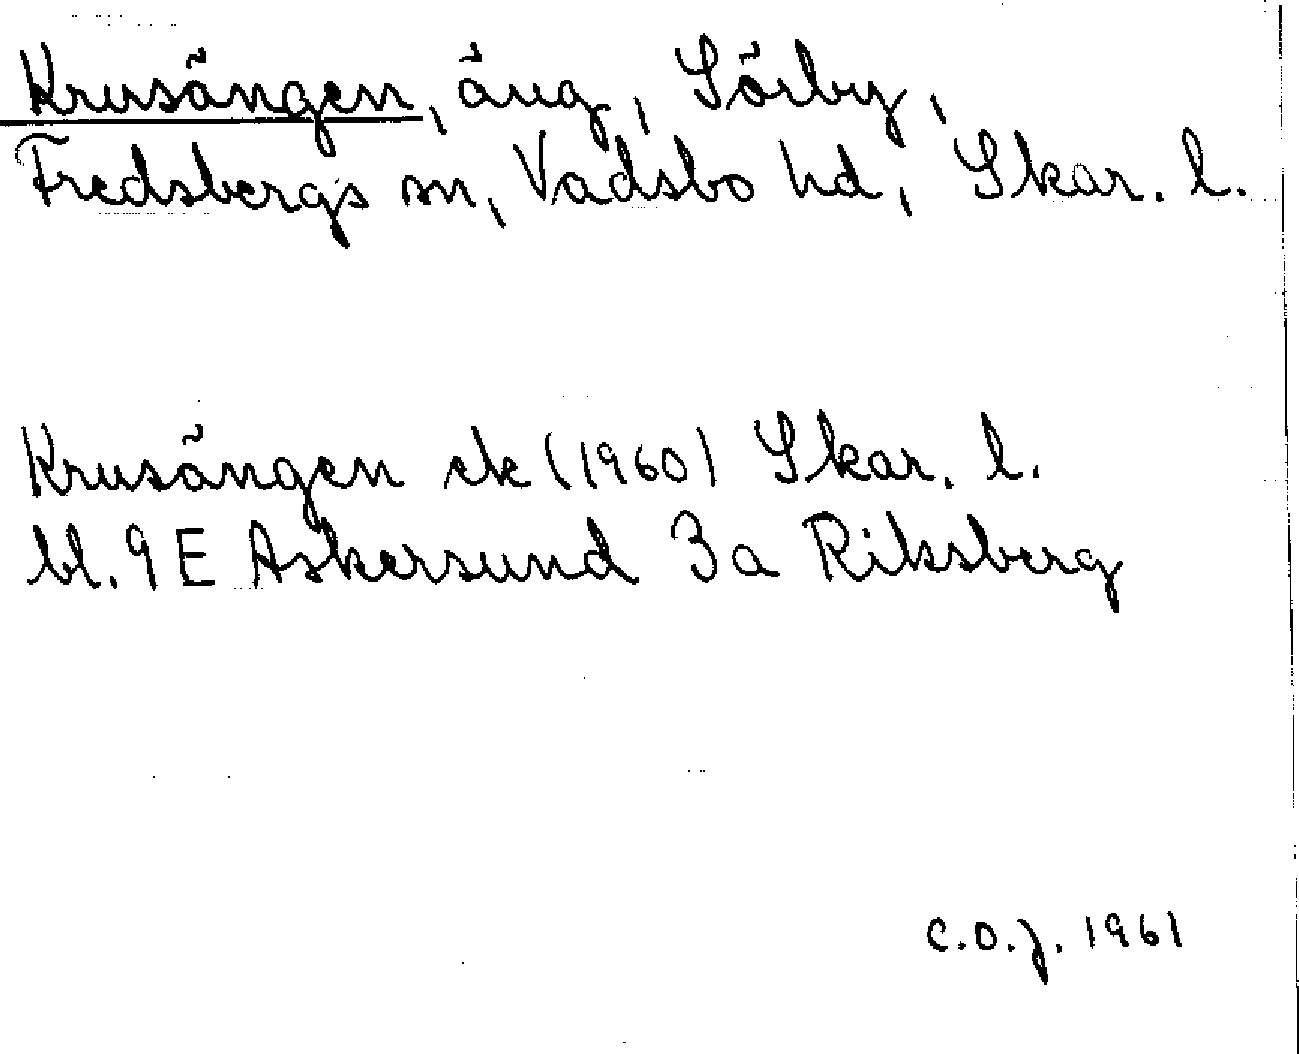 Krusängen, äng, Sörby,
Fredsbergs sn, Vadsbo hd, Skar. l.
Krusängen ek (1960) Skar. l.
bl. 9 E Askersund 3a Riksberg
C.O.J. 1961